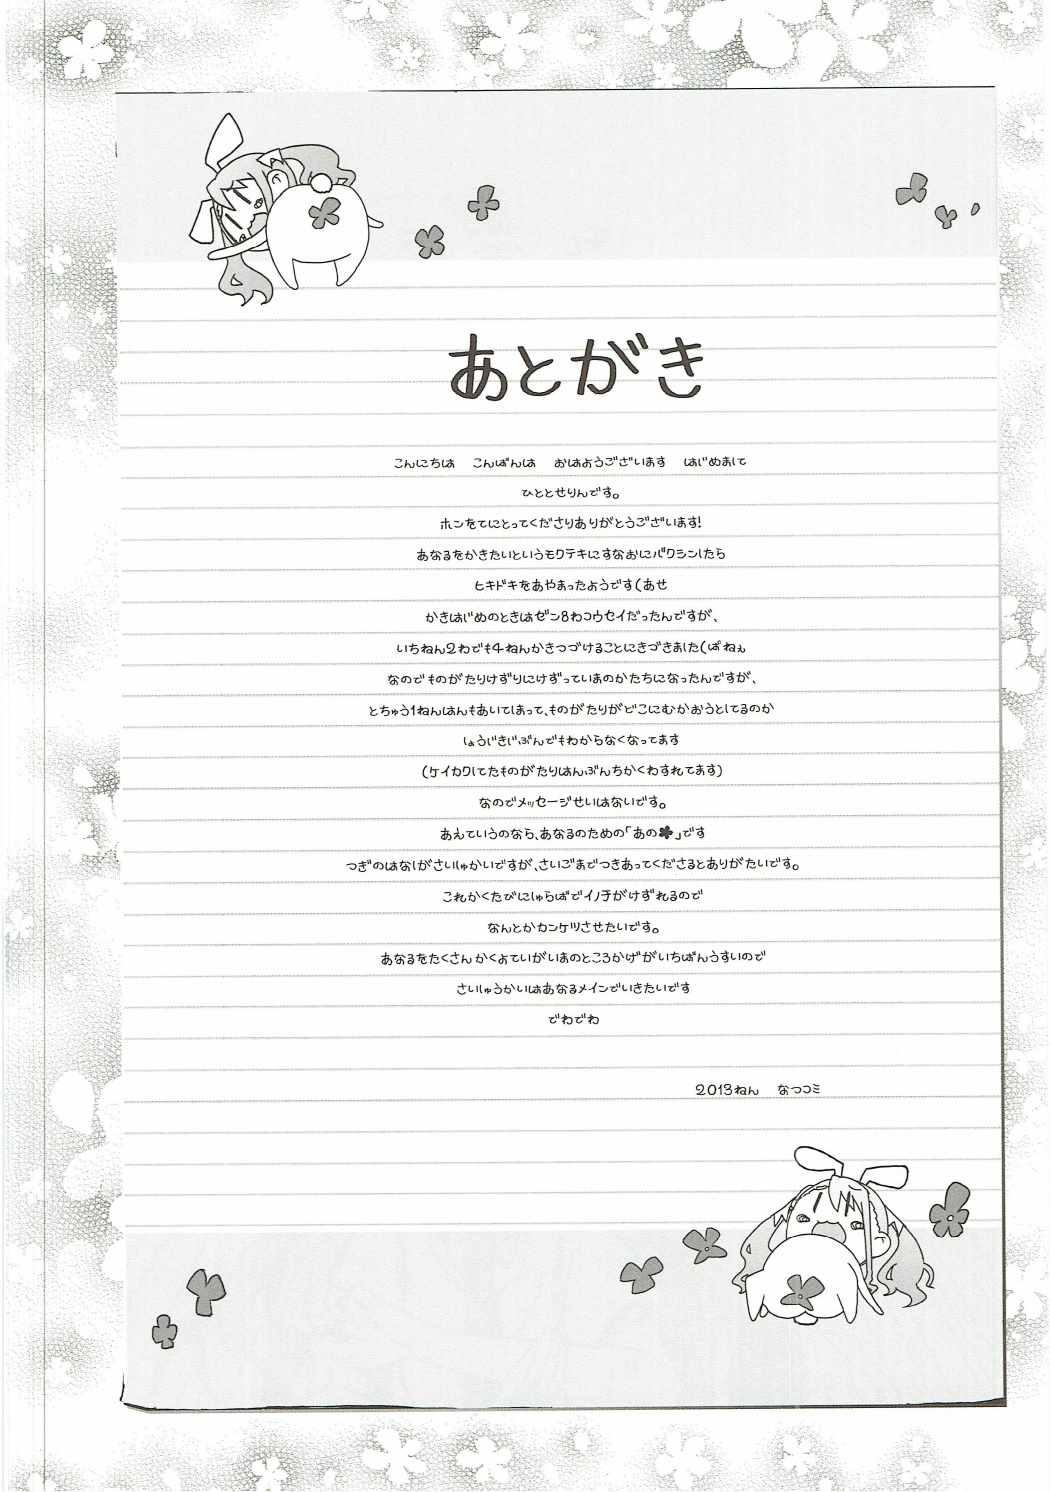 あとがき
こんにちは こんばんは おはようございます はじめまして
ひととせりんです。
ホンをてにとってくださりありがとうございます!
あなるをかきたいというモクテキにすなおにバクシンしたら
ヒキドキをあやまったようです(あせ
かきはじめのときはゼン8わコウセイだったんですが、
いちねん2わでも4ねんかきつづけることにきづきました(ぱねぇ
なのでものがたりけずりにけずっていまのかたちになったんですが、
とちゅう1ねんはんもあいてしまって、ものがたりがどこにむかおうとしてるのか
しょうじきじぶんでもわからなくなってます
(ケイカクしてたものがたりはんぶんちかくわすれてます)
なのでメッセージせいはないです。
あえていうのなら、あなるのための「あの✽」です
つぎのはなしがさいしゅかいですが、さいごまでつきあってくださるとありがたいです。
これかくたびにしゅらばでイノチがけずれるので
なんとかカンケツさせたいです。
あなるをたくさんかくよていがいまのところかげがいちばんうすいので
さいしゅうかいはあなるメインでいきたいです
でわでわ
2013ねん なつコミ